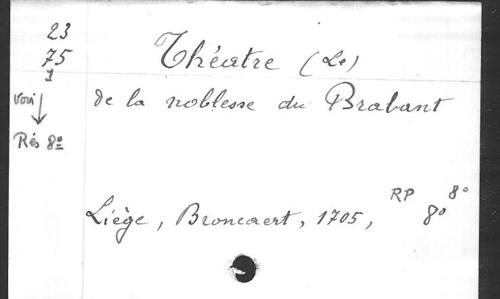 23
75
1
voir
Rés 8º
Théatre (Le)
de la noblesse du Brabant
Liège, Broncaert, 1705, RP 8º
8º